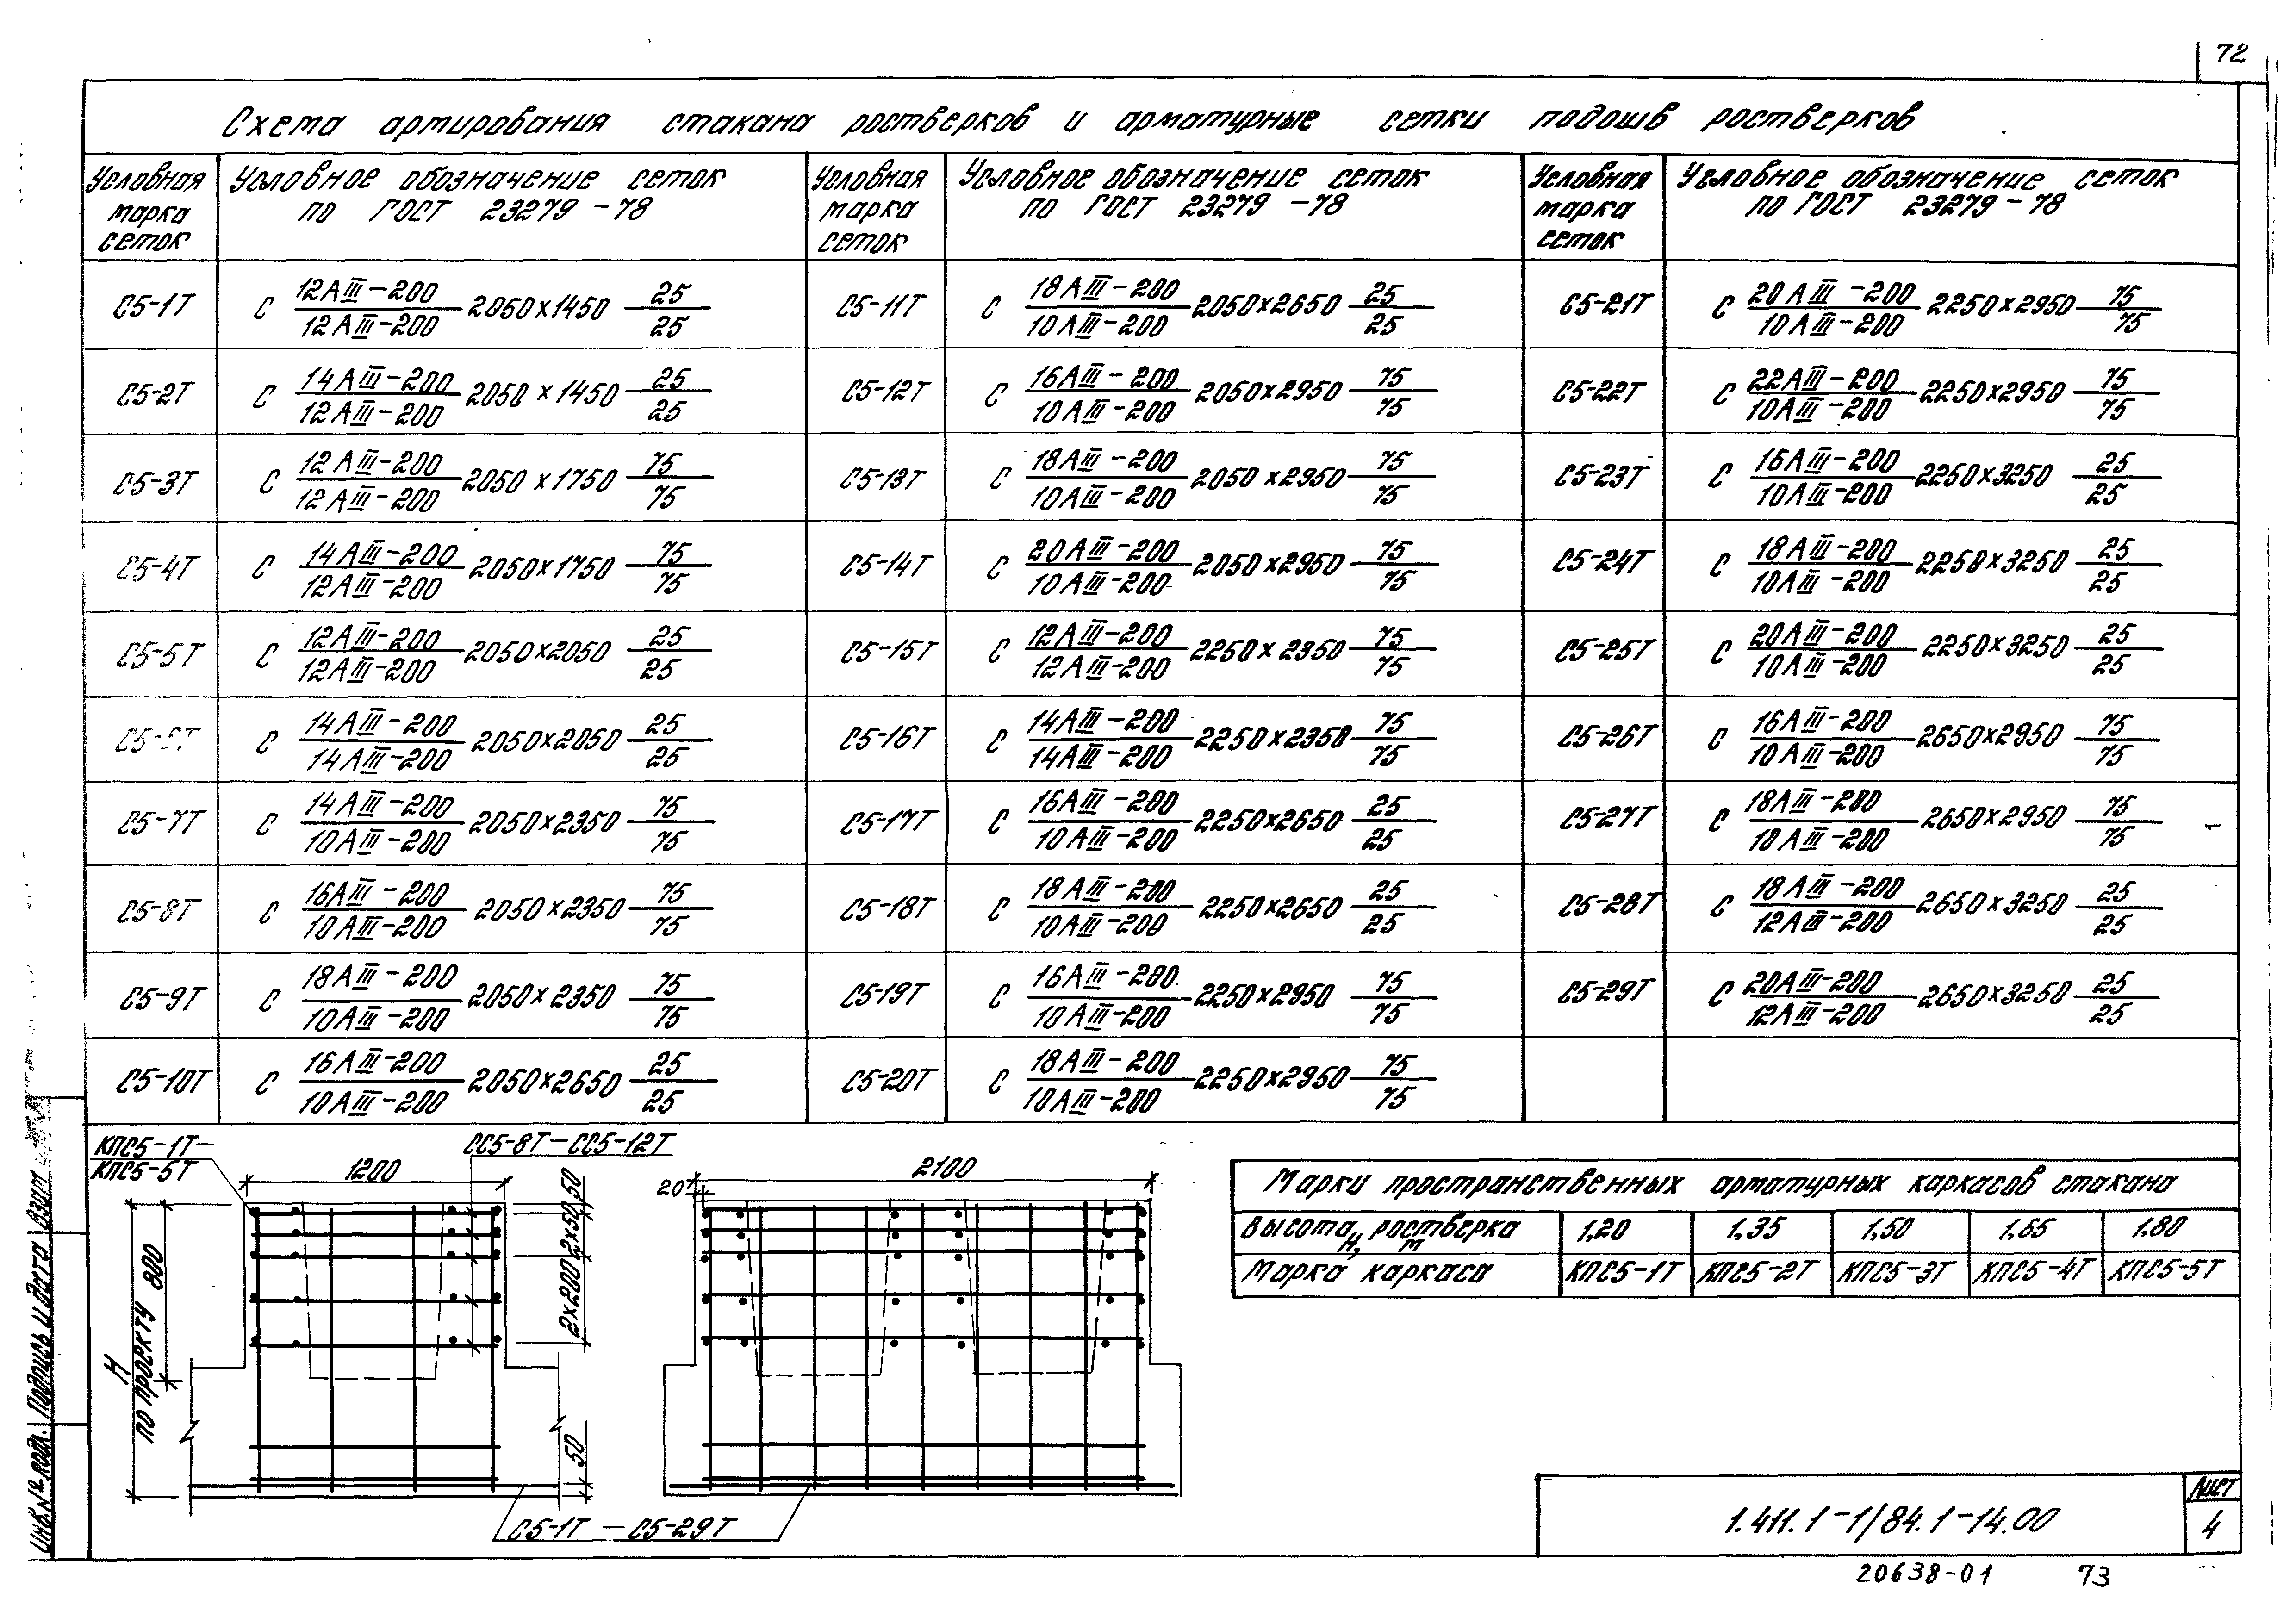 72
Схема армирования стакана ростверков и арматурные сетки подошв ростверков
Условная марка сеток
Условное обозначение сеток по ГОСТ 23279-78
Условная марка сеток
Условное обозначение сеток по ГОСТ 23279-78
Условная марка сеток
Условное обозначение сеток по ГОСТ 23279-78
С5-1Т С 12АIII-200/12АIII-200 2050х1450 25/25
С5-11Т С 18АIII-200/10АIII-200 2050х2650 25/25
С5-21Т С 20АIII-200/10АIII-200 2250х2950 75/75
С5-2Т С 14АIII-200/12АIII-200 2050х1450 25/25
С5-12Т С 16АIII-200/10АIII-200 2050х2950 75/75
С5-22Т С 22АIII-200/10АIII-200 2250х2950 75/75
С5-3Т С 12АIII-200/12АIII-200 2050х1750 75/75
С5-13Т С 18АIII-200/10АIII-200 2050х2950 75/75
С5-23Т С 16АIII-200/10АIII-200 2250х3250 25/25
С5-4Т С 14АIII-200/12АIII-200 2050х1750 75/75
С5-14Т С 20АIII-200/10АIII-200 2050х2950 75/75
С5-24Т С 18АIII-200/10АIII-200 2250х3250 25/25
С5-5Т С 12АIII-200/12АIII-200 2050х2050 25/25
С5-15Т С 12АIII-200/12АIII-200 2250х2350 75/75
С5-25Т С 20АIII-200/10АIII-200 2250х3250 25/25
С5-6Т С 14АIII-200/14АIII-200 2050х2050 25/25
С5-16Т С 14АIII-200/14АIII-200 2250х2350 75/75
С5-26Т С 16АIII-200/10АIII-200 2650х2950 75/75
С5-7Т С 14АIII-200/10АIII-200 2050х2350 75/75
С5-17Т С 16АIII-200/10АIII-200 2250х2650 25/25
С5-27Т С 18АIII-200/10АIII-200 2650х2950 75/75
С5-8Т С 16АIII-200/10АIII-200 2050х2350 75/75
С5-18Т С 18АIII-200/10АIII-200 2250х2650 25/25
С5-28Т С 18АIII-200/12АIII-200 2650х3250 25/25
С5-9Т С 18АIII-200/10АIII-200 2050х2350 75/75
С5-19Т С 16АIII-200/10АIII-200 2250х2950 75/75
С5-29Т С 20АIII-200/12АIII-200 2650х3250 25/25
С5-10Т С 16АIII-200/10АIII-200 2050х2650 25/25
С5-20Т С 18АIII-200/10АIII-200 2250х2950 75/75
КПС5-1Т-
КПС5-5Т
СС5-8Т-СС5-12Т
1200
50
2х50
2х200
800
Н
по проекту
50
20
2100
С5-1Т - С5-29Т
Марки пространственных арматурных каркасов стакана
Высота ростверка Н, м 1,20 1,35 1,50 1,65 1,80
Марка каркаса КПС5-1Т КПС5-2Т КПС5-3Т КПС5-4Т КПС5-5Т
Инв.№ подл. Подпись и дата Взам
1.411.1-1/84.1-14.00
Лист
4
20638-01 73